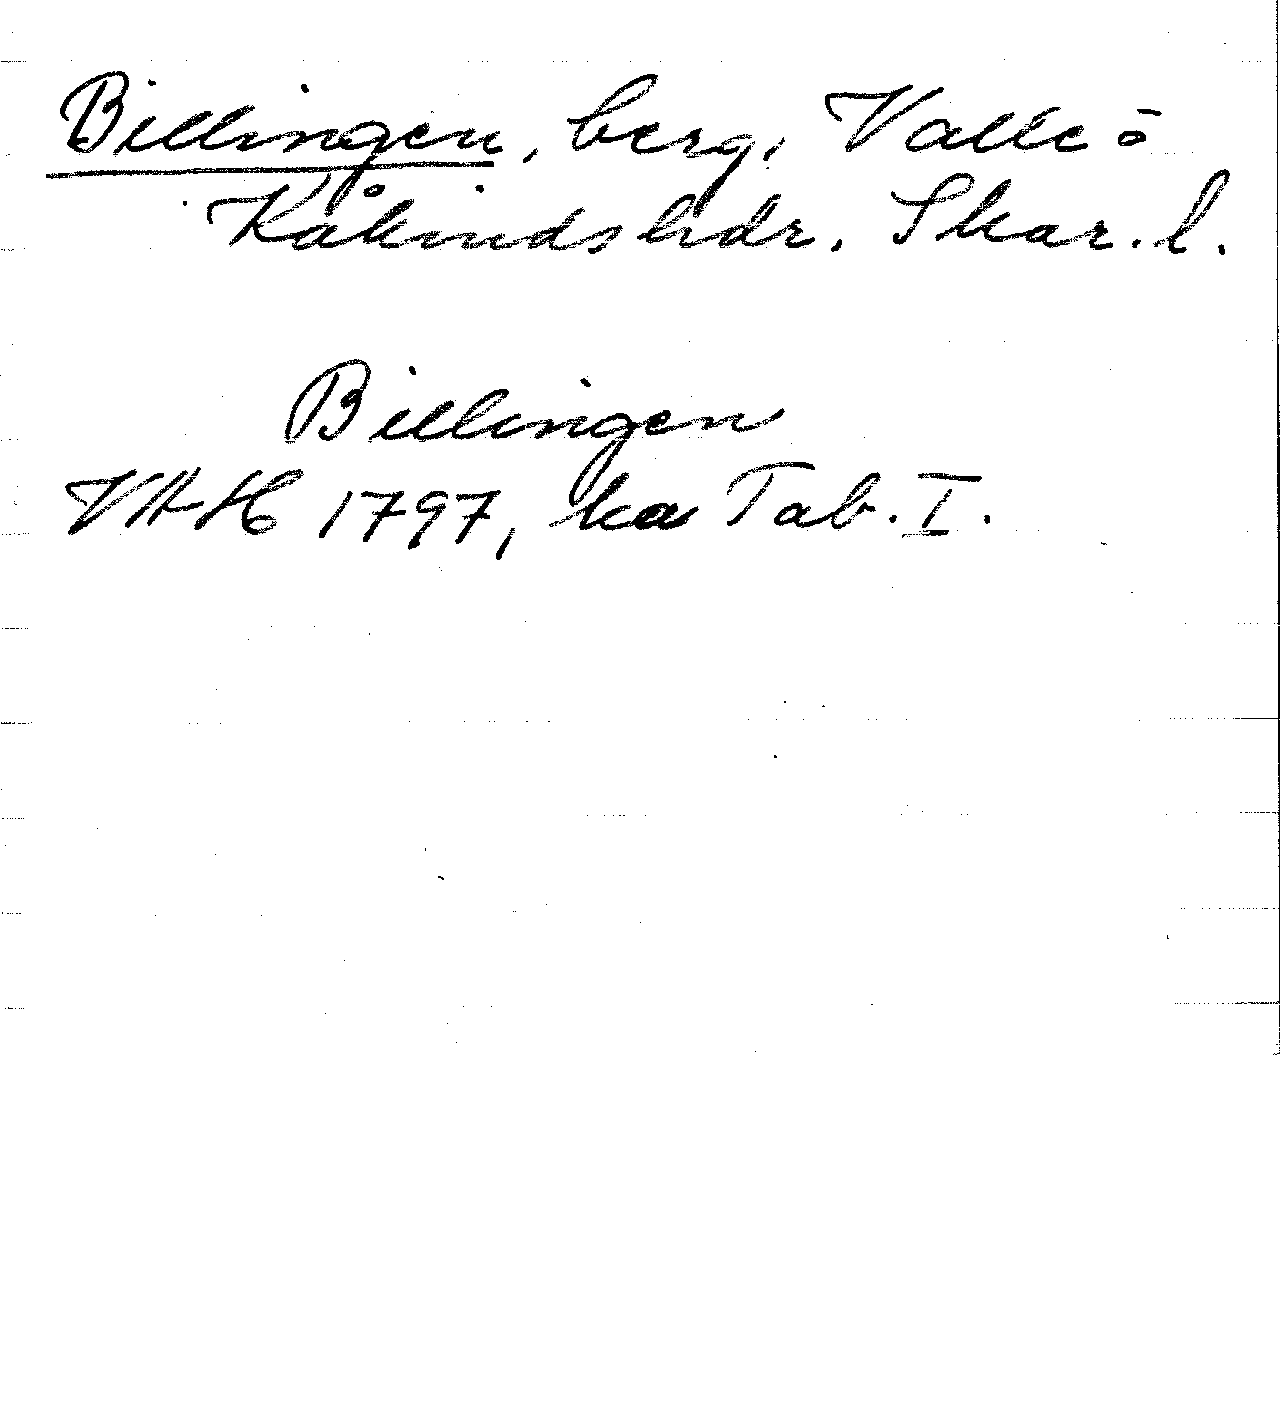 Billingen, berg, Valle ō
Kåkindshdr. Skar. l.
Billingen
VAH 1797, ka Tab. I.